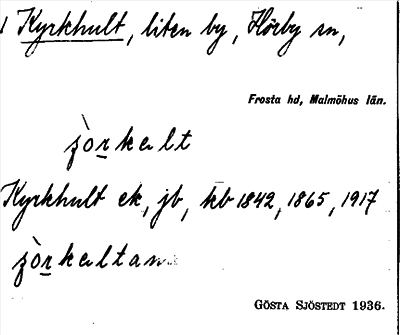 Kyrkhult, liten by, Hörby sn,
Frosta hd, Malmöhus län.
ʒòrkalt
Kyrkhult ek, jb, kb 1842, 1865, 1917
ʒòrkaltan
GÖSTA SJÖSTEDT 1936.